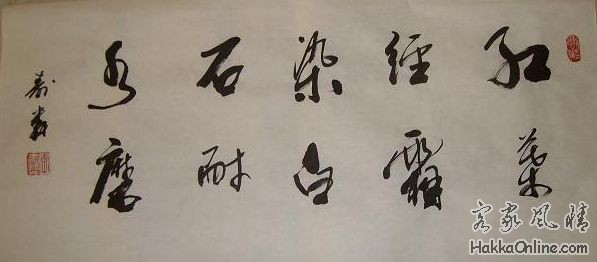 紅葉
經霜
染白
石耐
水磨
客家風情
HakkaOnline.com